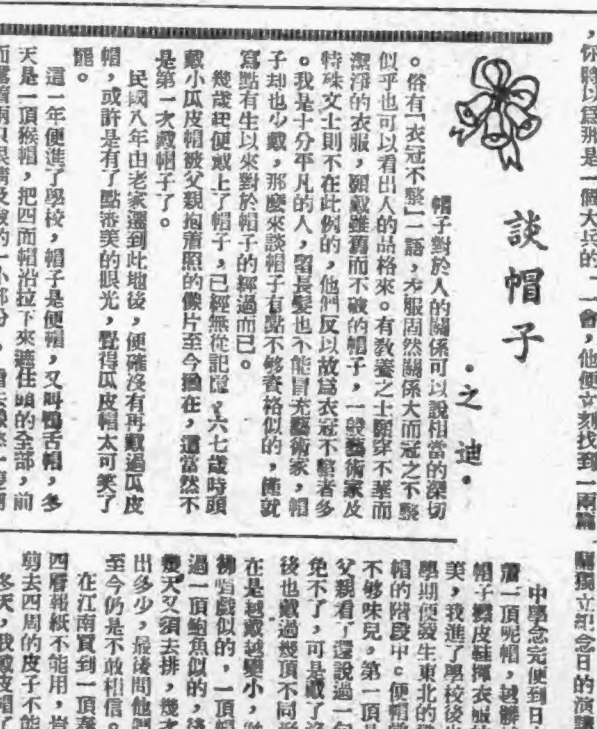 ，你將以爲那是一個大兵的
一會，他便立刻找到一兩篇
獨立紀念日的演講
談帽子
・之迪・
帽子對於人的關係可以說相當的深切
。俗有「衣冠不整」一語，衣服固然關係大而冠之不整
似乎也可以看出人的品格來。有敎養之士願穿不華而
潔淨的衣服，願戴雖舊而不破的帽子，一般藝術家及
特殊文士則不在此例的，他們反以故爲衣冠不整者多
。我是十分平凡的人，留長髮也不能冒充藝術家，帽
子却也少戴，那麼來談帽子有點不够資格似的，僅就
寫點有生以來對於帽子的經過而已。
幾歲起便戴上了帽子，已經無從記憶，六七歲時頭
戴小瓜皮帽被父親抱着照的像片至今猶在，這當然不
是第一次戴帽子了。
民國八年由老家遷到此地後，便確沒有再戴過瓜皮
帽，或許是有了點審美的眼光，覺得瓜皮帽太可笑了
罷。
這一年便進了學校，帽子是便帽，又叫鴨舌帽，冬
天是一頂猴帽，把四面帽沿拉下來遮住頭的全部，前
的一小部分，
中學念完便到日
一頂呢帽，越髒
帽子
美，我進了學校後
學期便發生東北的
帽的階段中。便帽
不够味兒，第一頂
父親看了還說過一句
免不了，可是戴了
後也戴過幾頂不同
在是越戴越變小，
戲似的，一頂帽
過一頂鮑魚似的，後
幾天又須去排，幾
出多少，最後問他們
至今仍是不敢相信。
在江南買到一頂
四層報紙不能用，
剪去四周的皮子不能
冬天，我戴皮帽了